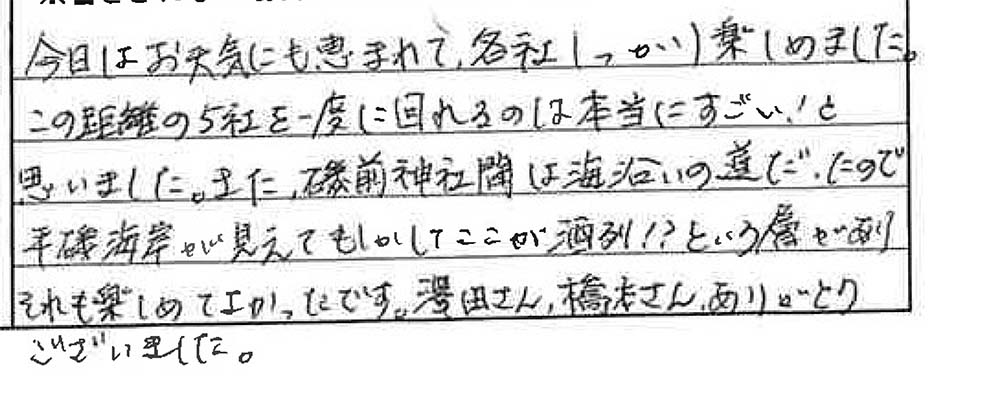 今日はお天気にも恵まれて、各社しっかり楽しめました。
この距離の5社を一度に回れるのは本当にすごい!と
思いました。また、磯前神社間は海沿いの道だったので
平磯海岸が見えてもしかしてここが酒列!?という があり
それも楽しめてよかったです。澤田さん、橋本さん、ありがとう
ございました。